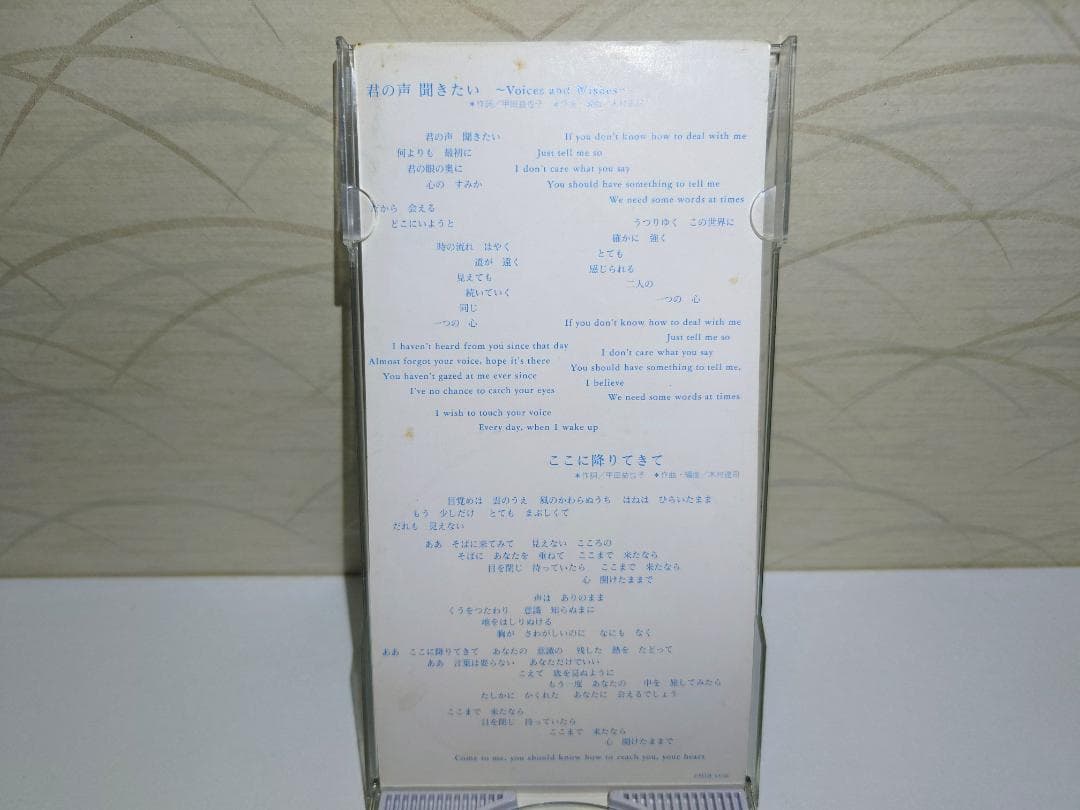 君の声 聞きたい ~Voices and
*作詞/甲田益也子 *作曲・編曲/木村達司
君の声 聞きたい
何よりも 最初に
君の眼の奥に
心の すみか
だから 会える
どこにいようと
時の流れ はやく
道が 遠く
見えても
続いていく
同じ
一つの 心
I haven't heard from you since that day
Almost forgot your voice, hope it's there
You haven't gazed at me ever since
I've no chance to catch your eyes
I wish to touch your voice
Every day, when I wake up
If you don't know how to deal with me
Just tell me so
I don't care what you say
You should have something to tell me
We need some words at times
うつりゆく この世界に
確かに 強く
とても
感じられる
二人の
一つの 心
If you don't know how to deal with me
Just tell me so
I don't care what you say
You should have something to tell me,
I believe
We need some words at times
ここに降りてきて
*作詞/甲田益也子 *作曲・編曲/木村達司
目覚めは 雲のうえ 風のかわらぬうち はねは ひらいたまま
もう 少しだけ とても まぶしくて
だれも 見えない
ああ そばに来てみて 見えない こころの
そばに あなたを 重ねて ここまで 来たなら
目を閉じ 待っていたら ここまで 来たなら
心 開けたままで
声は ありのまま
くうをつたわり 意識 知らぬまに
地をはしりぬける
胸が さわがしいのに なにも なく
ああ ここに降りてきて あなたの 意識の 残した 熱を たどって
ああ 言葉は要らない あなただけでいい
こえて 底を見ぬように
もう一度 あなたの 中を 旅してみたら
たしかに かくれた あなたに 会えるでしょう
ここまで 来たなら
目を閉じ 待っていたら
ここまで 来たなら
心 開けたままで
Come to me, you should know how to reach you, your heart